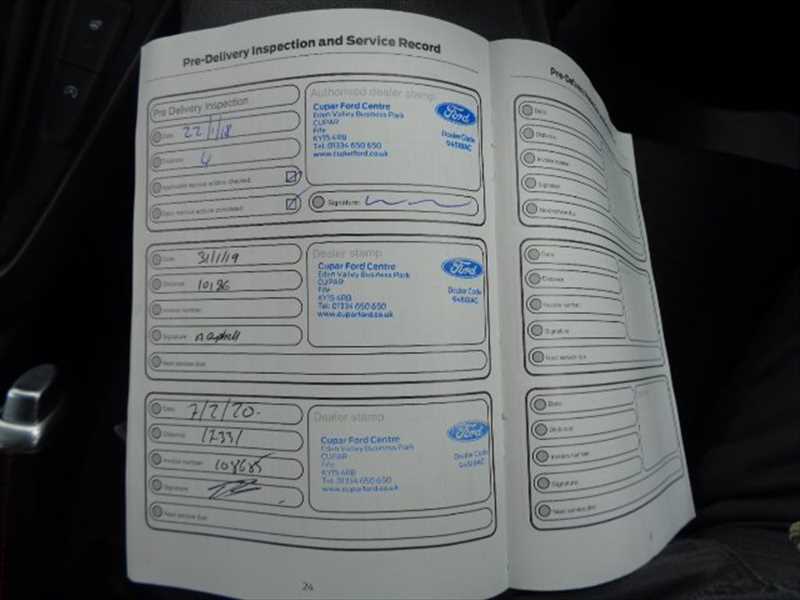 Pre-Delivery Inspection and Service Record
Pre Delivery Inspection
Date 22/1/18
Distance 4
Applicable service actions checked
Signature:
Authorised dealer stamp
Cupar Ford Centre
Eden Valley Business Park
CUPAR
Fife
KY15 4RB
Tel. 01334 650 650
www.cuparford.co.uk
Ford
Dealer Code
Date 31/1/19
Distance 10186
Invoice number
Signature
Next service due
Dealer stamp
Cupar Ford Centre
Eden Valley Business Park
CUPAR
Fife
KY15 4RB
Tel: 01334 650 650
www.cuparford.co.uk
Ford
Dealer Code
Date 7/2/20.
Distance 17331
Invoice number 108685
Signature
Next service due
Dealer stamp
Cupar Ford Centre
Eden Valley Business Park
CUPAR
Fife
KY15 4RB
Tel. 01334 650 650
www.cuparford.co.uk
Ford
Dealer Code
24
Date
Distance
Invoice number
Signature
Next service due
Date
Distance
Invoice number
Signature
Next service due
Date
Distance
Invoice number
Signature
Next service due